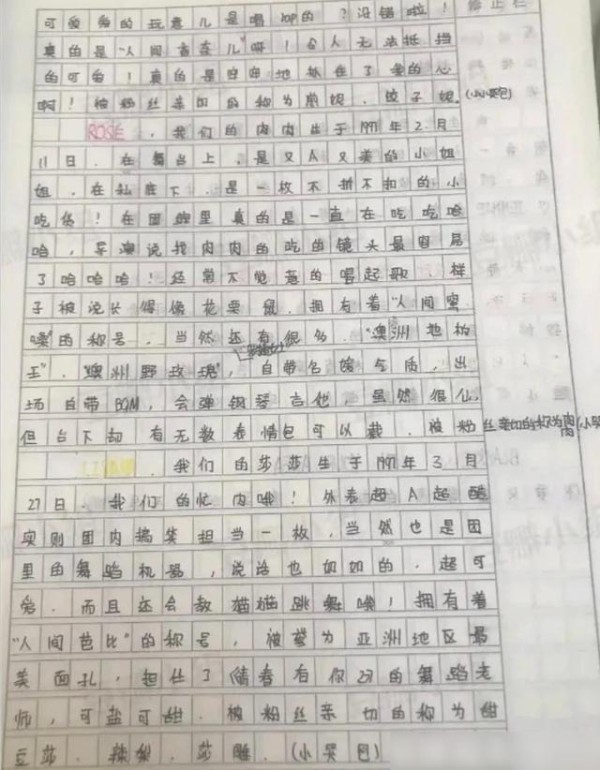 可爱爱的玩意儿是唱rap的？没错啦！
真的是“人间香奈儿”呀！令人无法抵挡
的可爱！真的是牢牢地抓住了我的心
啊！被粉丝亲切的称为煎妮、饺子妮。(小哭包)
ROSÉ，我们的肉肉出于1997年2月
11日．在舞台上，是又A又美的小姐
姐．在私底下．是一枚不折不扣的小
吃货！在团综里真的是一直在吃吃哈
哈，导演说找肉肉的吃的镜头最容易
了哈哈哈！经常不觉意的唱起歌 样
子被说长得像花栗鼠．拥有着“人间蜜
嗓”的称号，当然还有很多．“澳洲地柏
王”．“澳洲野玫瑰”，自带名媛气质，出
场自带BGM，会弹钢琴吉他，虽然很仙，
但台下却有无数表情包可以截．被粉丝亲切的称为
LISA．我们的莎莎生于1997年3月
27日．我们的忙内哦！外表超A超酷
实则团内搞笑担当一枚，当然也是团
里的舞蹈机器，说话也如如的．超可
爱．而且还会教猫猫跳舞哦！拥有着
“人间芭比”的称号，被誉为亚洲地区最
美面孔，担任了《青春有你2》的舞蹈老
师，可盐可甜．被粉丝亲切的称为甜
豆莎．辣梨．莎雕．(小哭包)